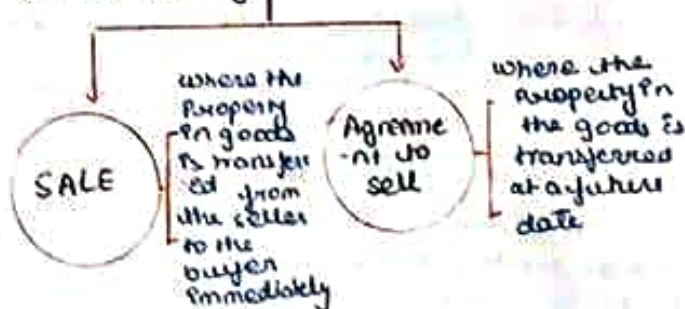 SALE
where the
Property
in goods
is transferr
ed from
the seller
to the
buyer
immediately
Agreeme
-nt to
sell
where the
Property in
the goods is
transferred
at a future
date